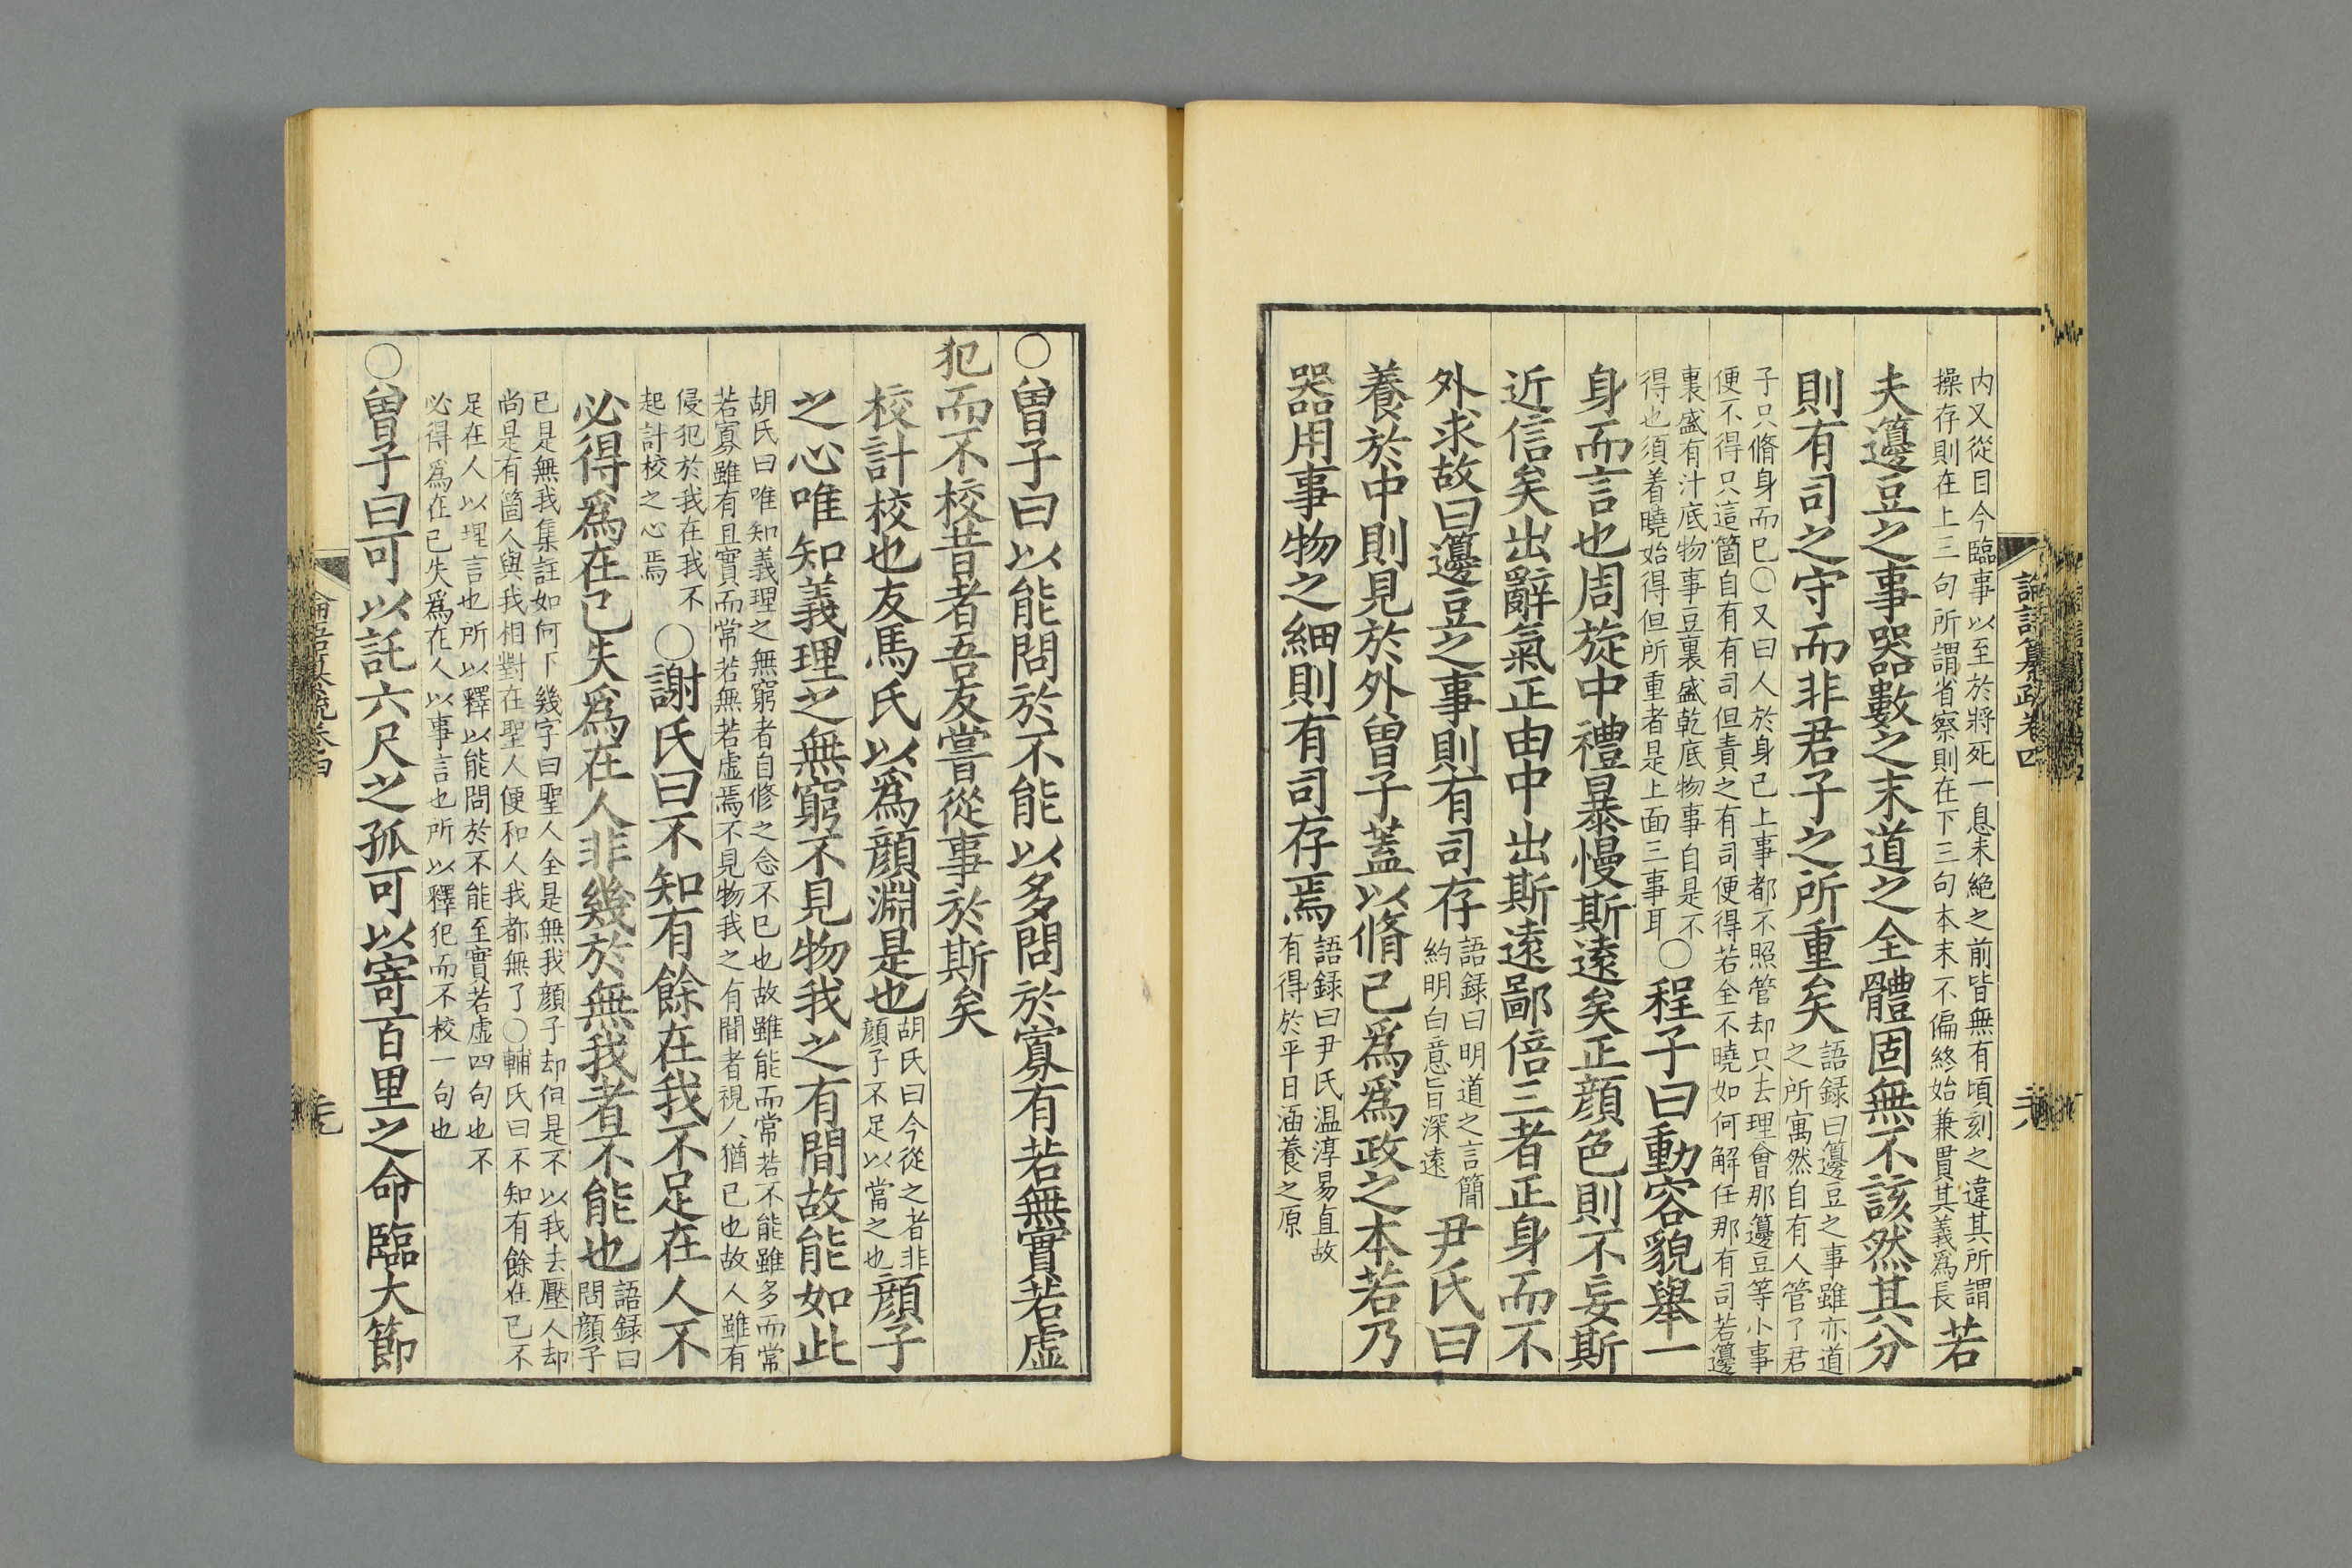 內又從目今臨事以至於將死一息未絶之前皆無有頃刻之違其所謂
操存則在上三句所謂省察則在下三句本末不偏終始兼貫其義爲長
若
夫籩豆之事器數之末道之全體固無不該然其分
則有司之守而非君子之所重矣
語録曰籩豆之事雖亦道
之所寓然自有人管了君
子只脩身而巳○又曰人於身已上事都不照管却只去理會那籩豆等小事
便不得只這箇自有有司但責之有司便得若全不曉如何解任那有司若籩
裏盛有汁底物事豆裏盛乾底物事自是不
得也須着曉始得但所重者是上面三事耳
○程子曰動容貌舉一
身而言也周旋中禮暴慢斯遠矣正顔色則不妄斯
近信矣出辭氣正由中出斯遠鄙倍三者正身而不
外求故曰籩豆之事則有司存
語録曰明道之言簡
約明白意旨深遠
尹氏曰
養於中則見於外曾子蓋以脩己爲爲政之本若乃
器用事物之細則有司存焉
語録曰尹氏温淳易直故
有得於平日涵養之原
論語纂疏卷四
○曾子曰以能問於不能以多問於寡有若無實若虛
犯而不校昔者吾友嘗從事於斯矣
校計校也友馬氏以爲顔淵是也
胡氏曰今從之者非
顔子不足以當之也
顔子
之心唯知義理之無窮不見物我之有間故能如此
胡氏曰唯知義理之無窮者自修之念不巳也故雖能而常若不能雖多而常
若寡雖有且實而常若無若虛焉不見物我之有間者視人猶已也故人雖有
侵犯於我在我不
起計校之心焉
○謝氏曰不知有餘在我不足在人不
必得爲在己失爲在人非幾於無我者不能也
語録曰
問顔子
已是無我集註如何下幾字曰聖人全是無我顔子却但是不以我去壓人却
尚是有箇人與我相對在聖人便和人我都無了○輔氏曰不知有餘在己不
足在人以理言也所以釋以能問於不能至實若虛四句也不
必得爲在己失爲在人以事言也所以釋犯而不校一句也
○曾子曰可以託六尺之孤可以寄百里之命臨大節
論語纂疏卷四